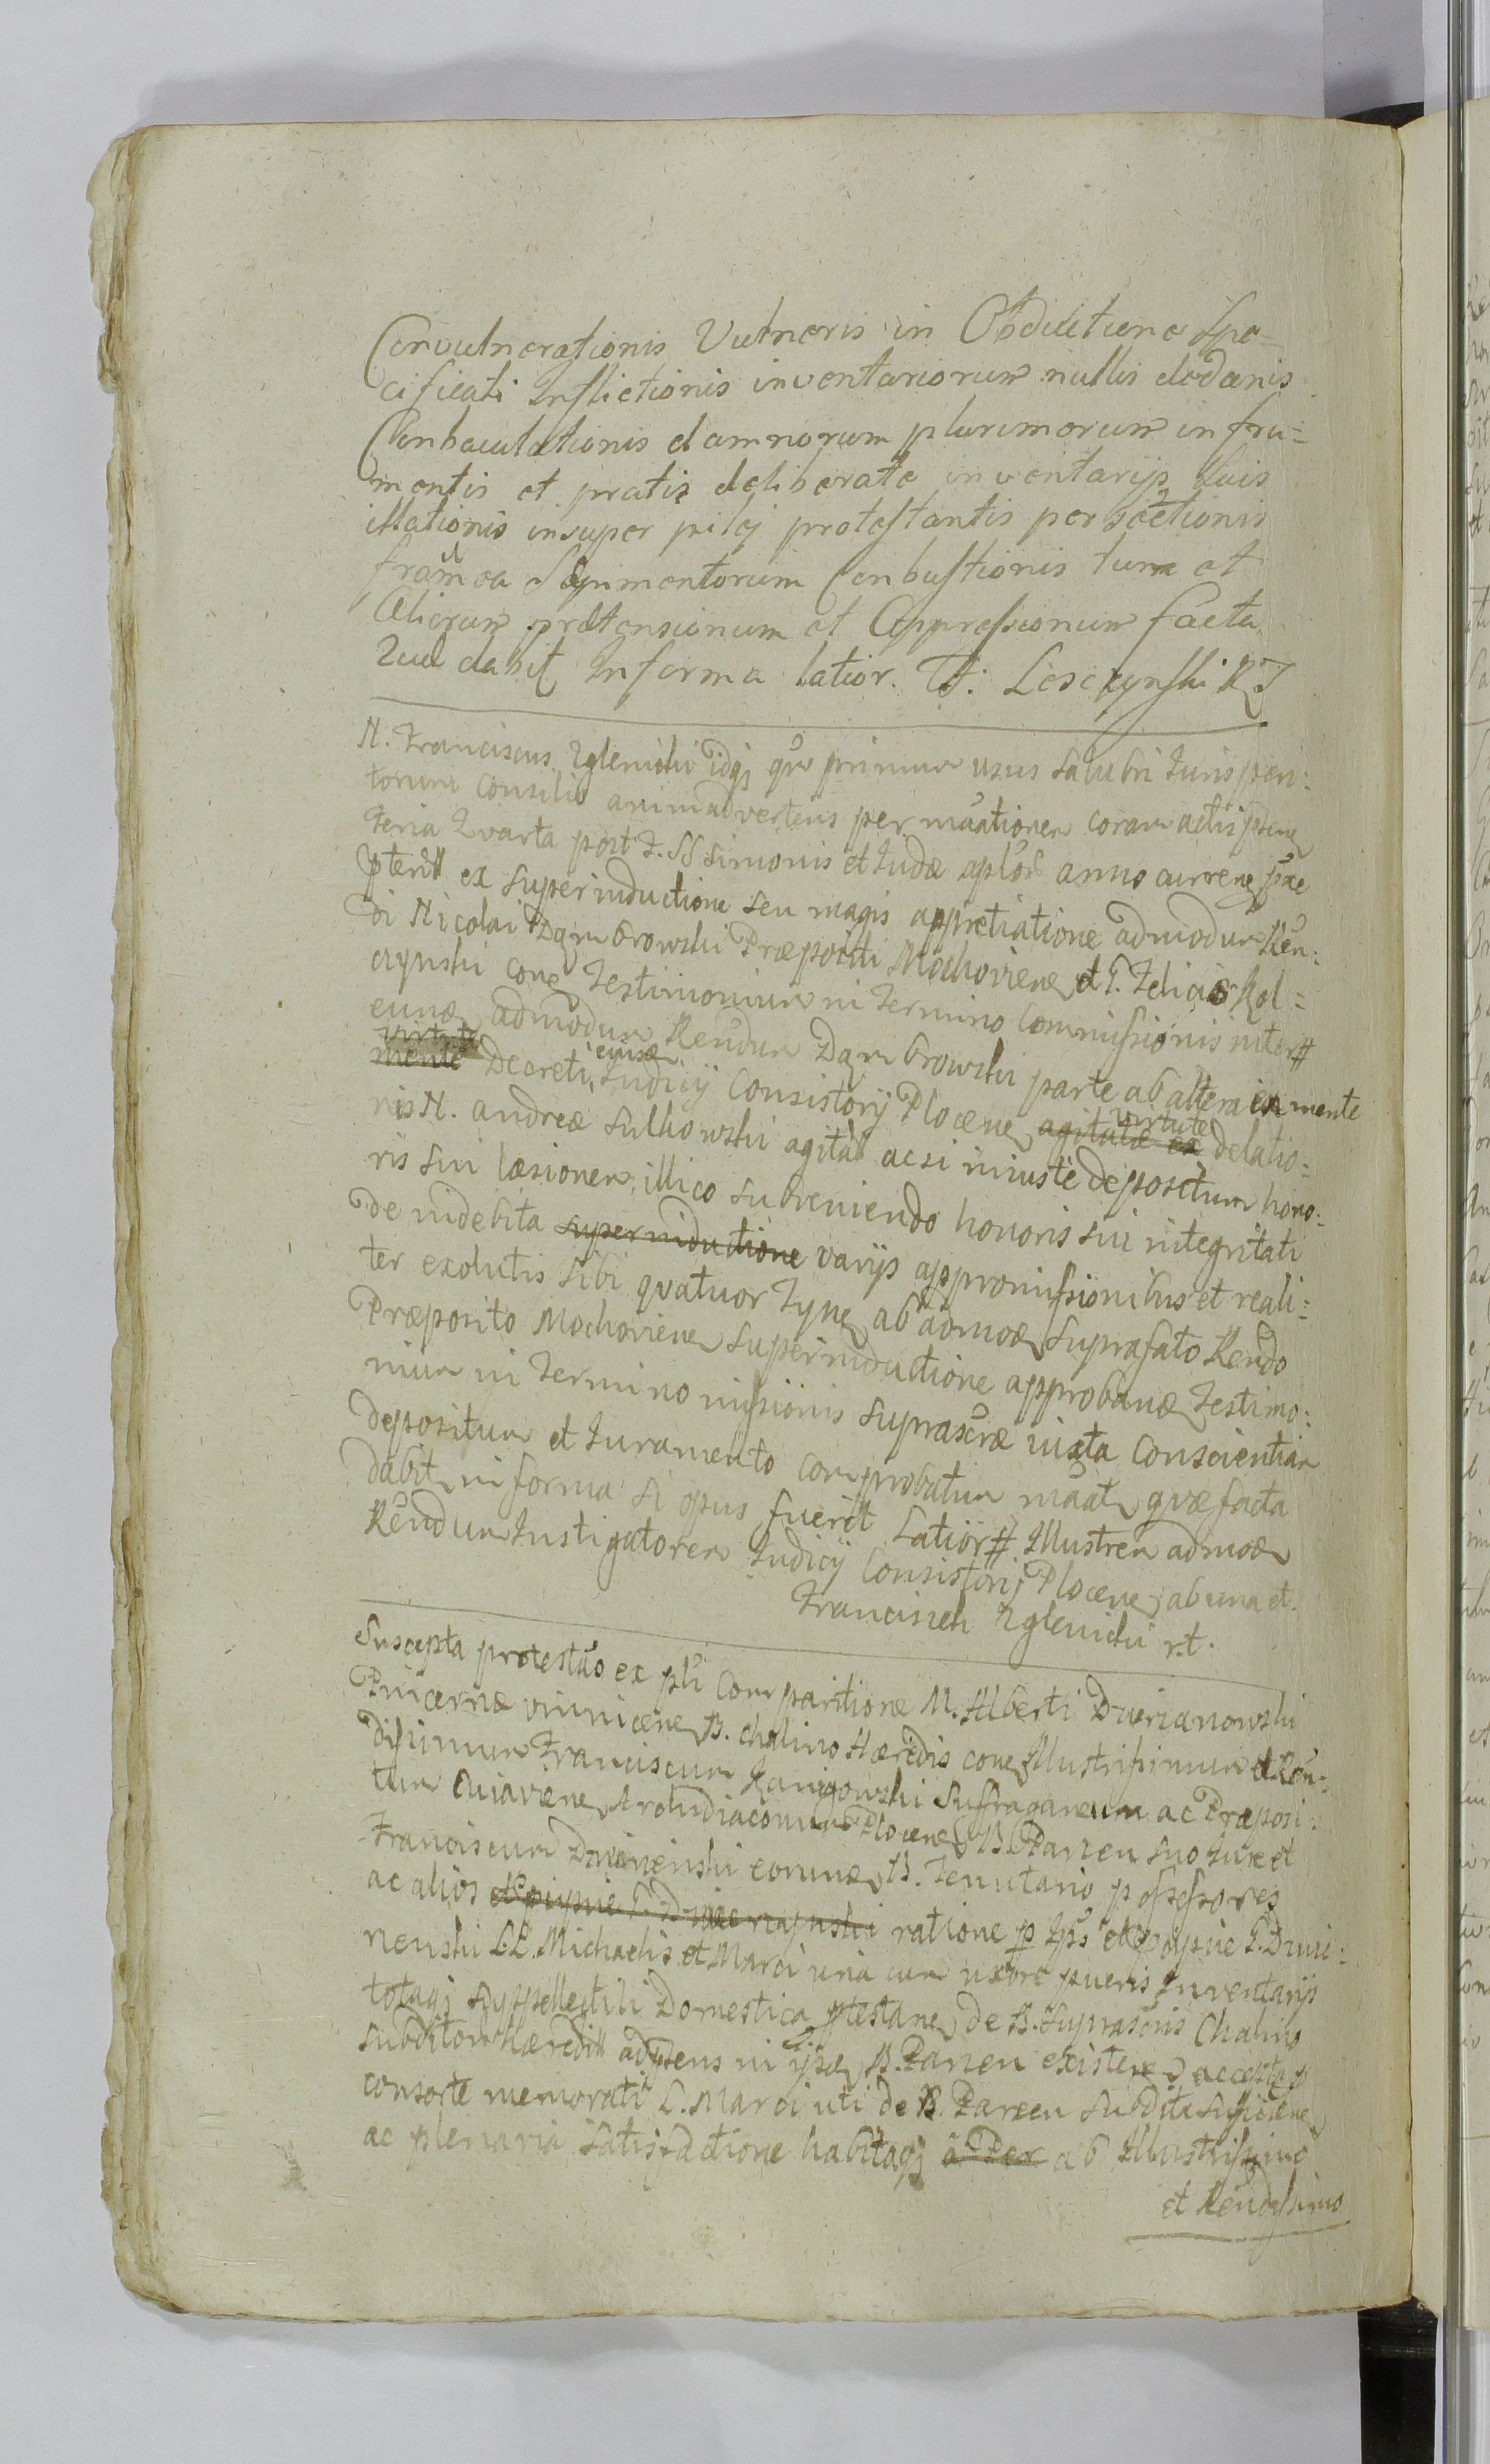 Convulnerationis Vulneris in Obductione Spe=
cificati Inflictionis inventariorum nullis de damnis
Conbaculationis damnorum plurimorum in fru=
mentis et pratis deliberate inventarijs suis
illationis insuper pilej protestantis persectionis
framea Sepimentorum Conbustionis tum et
Aliorum prætensionum et Oppressionum facta
Qua dabit Informa latior. Leszczynski
N. Franciscus Zglenicki idq; qm primum usus salubri Iuris peri:
torum Consilio animadvertens per maationem coram actis pntne
Feria Quarta post F. SS Simonis et Iudæ aplor anno currene pae
ptent ex superinductione seu magis appretiatione admodum Ren:
di Nicolai Dąmbrowski Præpositi Mochoviene et G. Felicis Kol=
czynski cone Testimonium in Termino Commissionis inter#
eunæ admodum Rendum Dąmbrowski parte ab altera ex mente
mente virtute Decreti eiusæ Iudicij Consistorij Plocene agitatæ ex virtute delatio=
nis N. Andreæ Sulkowski agitat ac si iniuste depositum hono:
ris sui læsionem, illico subveniendo honoris sui integritati
de indebita superinductione varijs appromissionibus et reali=
ter exolutis sibi quatuor Tyne ab admoæ suprafato Rendo
Præposito Mochoviene superinductione approbanæ Testimo:
nium in Termino missionis suprascræ iuxta Conscientiam
depositum et Iuramento comprobatum maat, quæ facta
dabit in forma si opus fuerit Latior # Illustrem admoæ
Rendum Instigatorem Iudicij Consistorij Plocene ab una et
Franciszek Zglenicki r.t.
Suscepta protestao ex pli Comparitione M. Alberti Dzierzanowski
Pincernæ vinnicene B. Chalino Hæredis cone Illustrissimum et Ren:
dissimum Franciscum Kanigowski Suffraganeum ac Præposi:
tum Cuiaviene Archidiaconum Plocene B. Parzen suo Iure et
Franciscum eorumæ B. Tenutario possessores
ac alios ratione
nenski LL. Michaelis et Marci una cum uxore pueris Inventarijs
totaq; suppellectili Domestica ptestane de B. suprascris Chalino
subditor hæredit adptens in ijsæ B. Parzen existene acceptæ
consorte memorati L. Marci uti de B. Parzen subdita sufficiene
ac plenaria satisfactione habitaq; a Per ab Illustrissimo
et Rendissimo